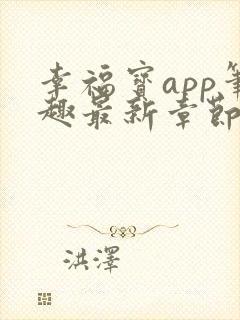 幸福寶app筆
趣最新章節
洪澤